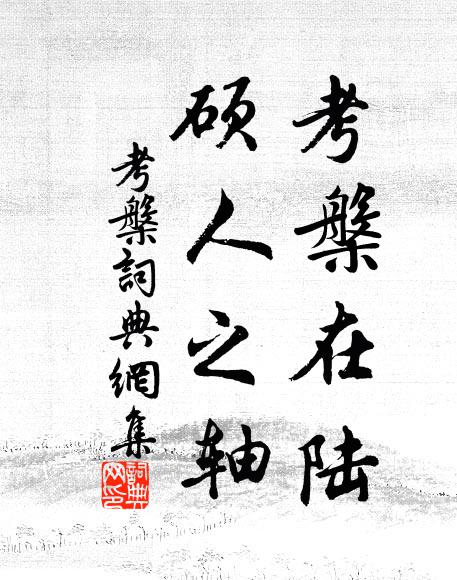 考槃在陆
硕人之轴
考槃詞典網集
詞典网印